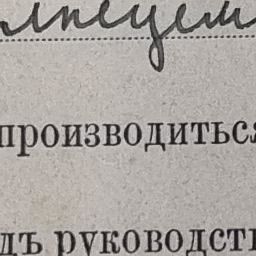 производиться
дъ руководст